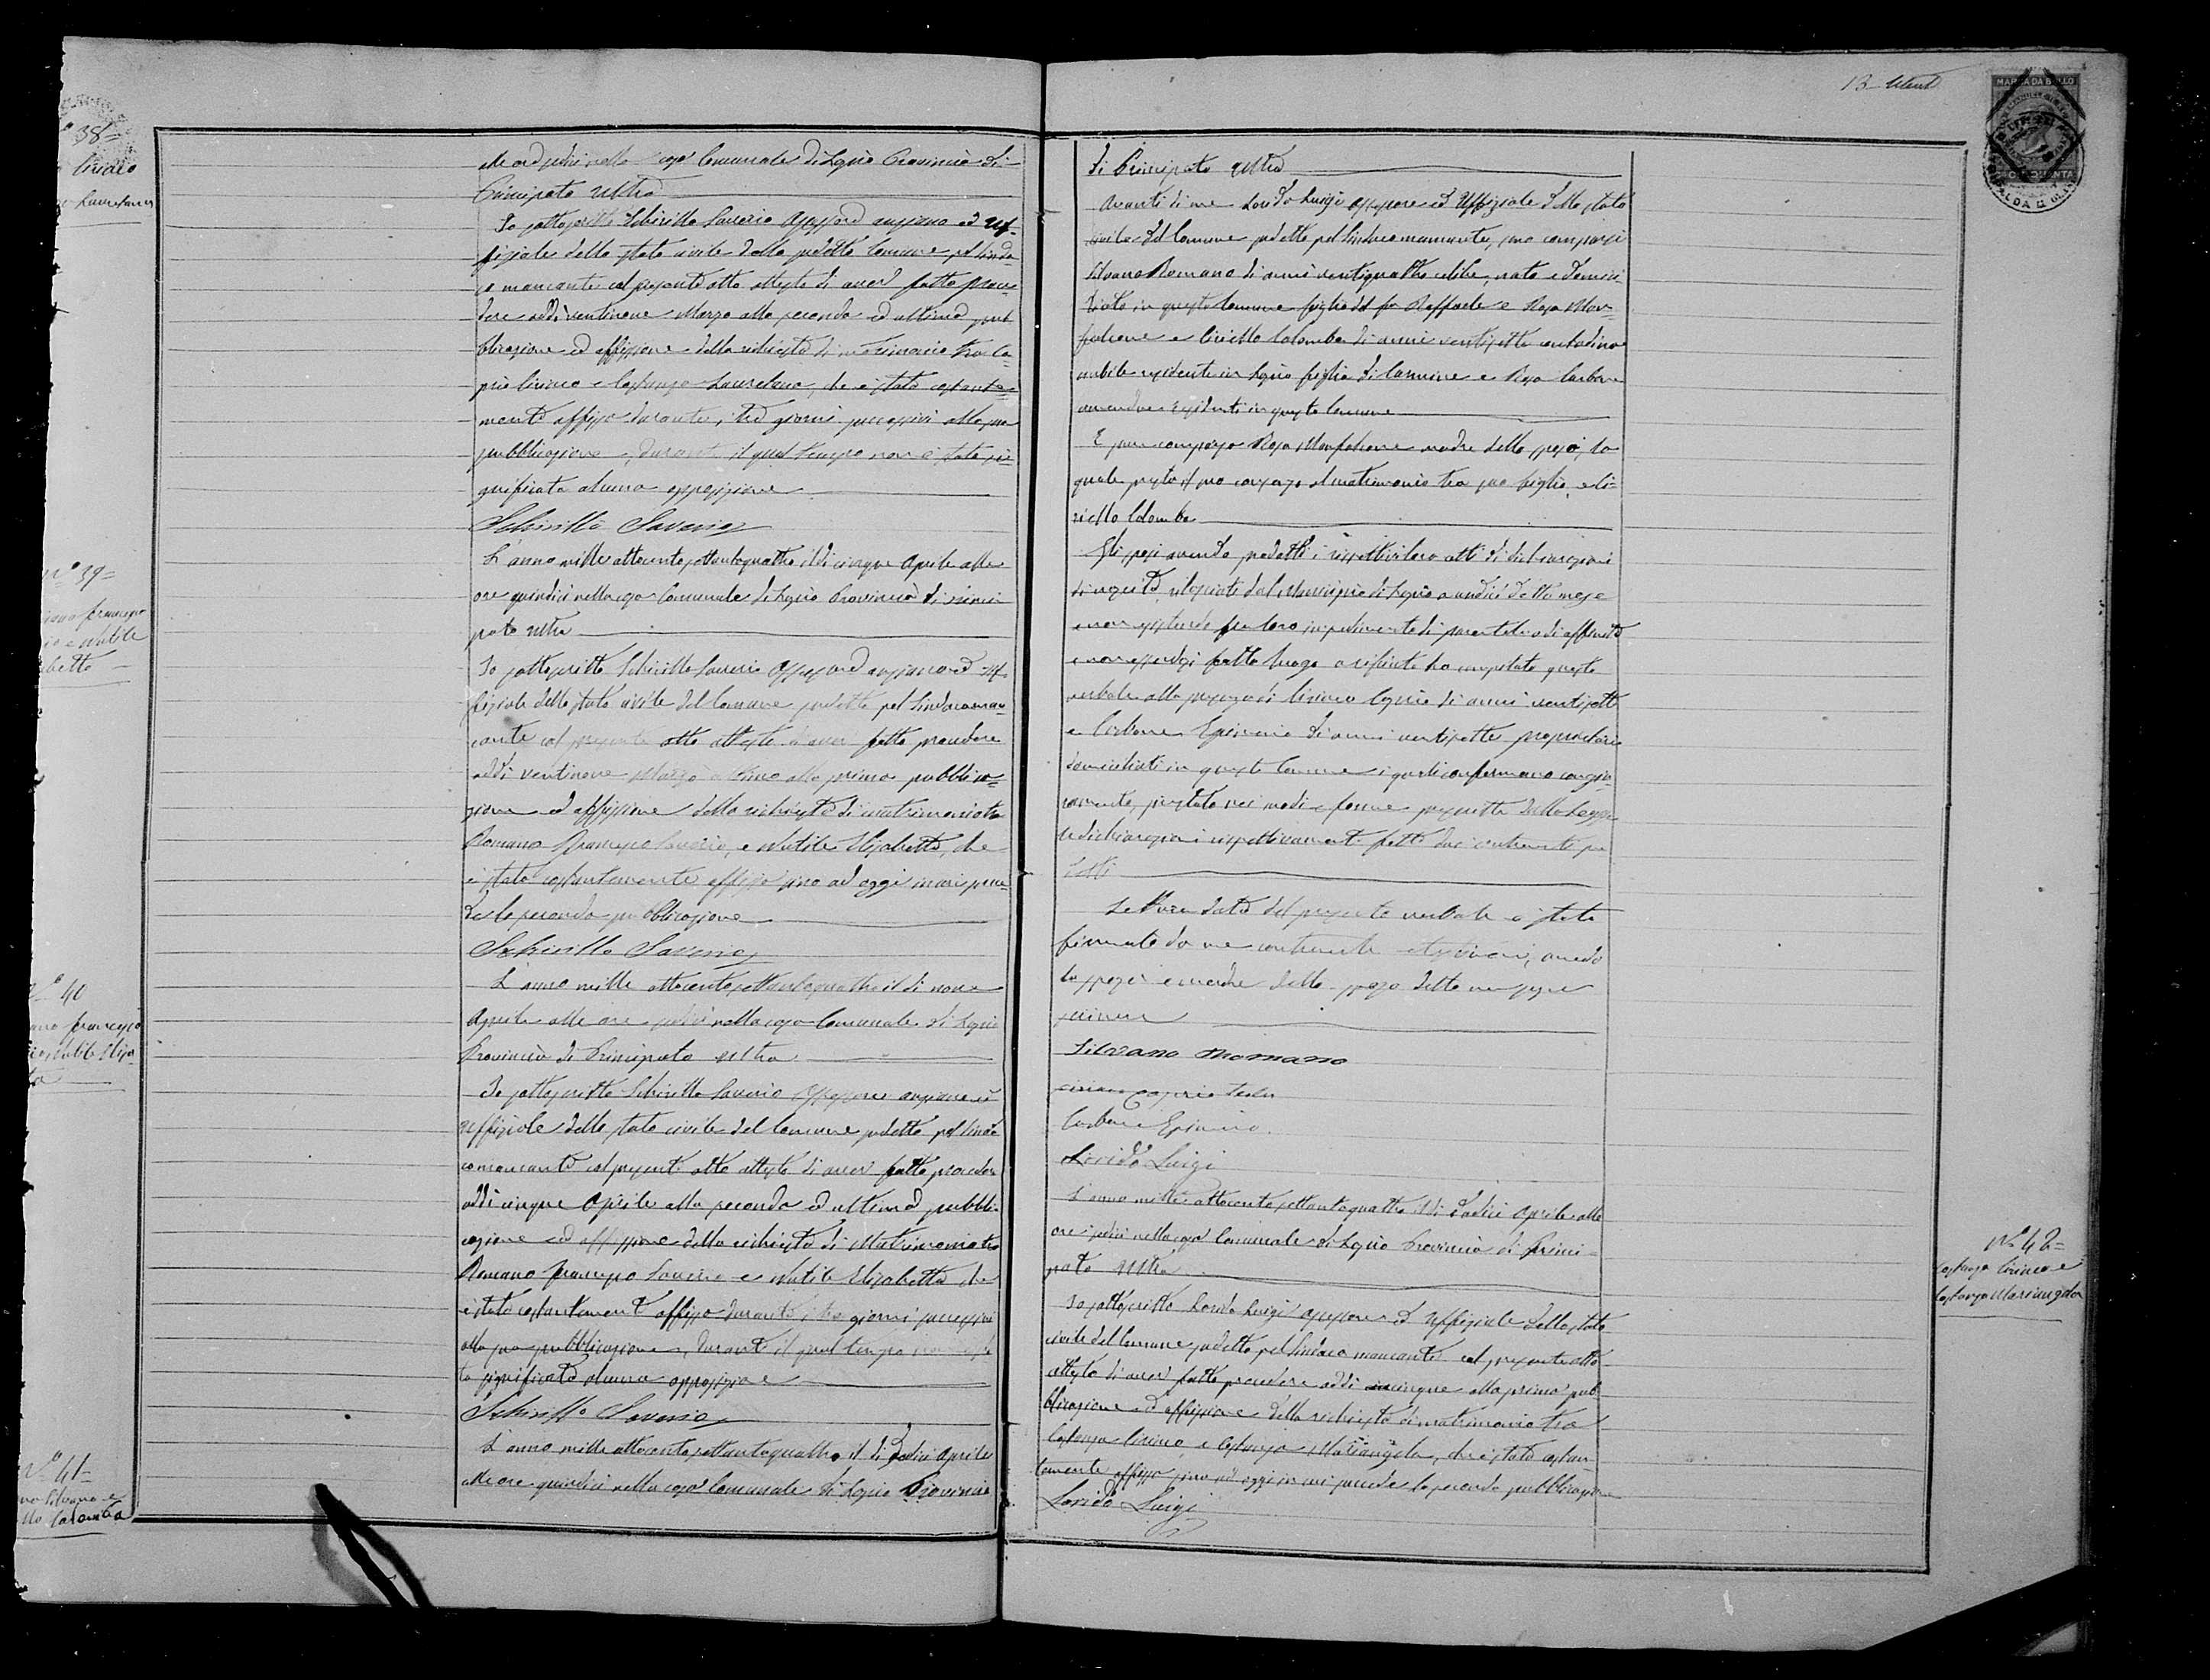 38=
Ciriaco
Lauretana
alle ore sedici nella casa Comunale di Lapio Provincia di
Principato Ultra
Io sottoscritto Schirillo Saverio Assessore anziano ed Uf=
fiziale dello stato civile della suddetta Comune pel Sinda=
co mancante col presente atto attesto di aver fatto proce
dere addì ventinove Marzo alla seconda ed ultima pub
blicazione ed affissione della richiesta di matrimonio tra Ca
prio Ciriaco e Costanza Lauretana, che è stata costante=
mente affissa durante i tre giorni successivi alla sua
pubblicazione, durante il qual tempo non è stata si=
gnificata alcuna opposizione
Schirillo Saverio
N.º 39=
Romano Francesco
e Nutile
betta
L'anno mille ottocento settantaquattro il dì cinque Aprile alle
ore quindici nella casa Comunale di Lapio Provincia di Princi
pato Ultra
Io sottoscritto Schirillo Saverio Assessore anziano ed Uf
fiziale dello stato civile del Comune suddetto pel Sindaco man=
cante col presente atto attesto d'aver fatto procedere
addì ventinove Marzo ultimo alla prima pubblica=
zione ed affissione della richiesta di matrimonio tra
Romano Francesco Saverio, e Nutile Elisabetta, che
è stata costantemente affissa sino ad oggi in cui succe=
de la seconda pubblicazione
Schirillo Saverio
N.º 40
Francesco
Nutile Elisa
ta
L'anno mille ottocento settantaquattro il dì nove
Aprile alle ore sedici nella casa Comunale di Lapio
Provincia di Principato Ultra
Io sottoscritto Schirillo Saverio Assessore anziano ed
uffiziale dello stato civile del Comune suddetto pel Sinda
co mancante col presente atto attesto di aver fatto proceder
addì cinque Aprile alla seconda ed ultima pubbli
cazione ed affissione della richiesta di Matrimonio tra
Romano Francesco Saverio e Nutile Elisabetta che
è stata costantemente affissa durante i tre giorni successivi
alla sua pubblicazione, durante il qual tempo non è sta
ta significata alcuna opposizione
Schirillo Saverio
N.º 41=
Silvano e
Colomba
L'anno mille ottocento settantaquattro il dì dodici Aprile
alle ore quindici nella casa Comunale di Lapio Provincia
13
MARCA DA BOLLO
di Principato Ultra
Avanti di me Lorido Luigi Assessore ed Uffiziale dello stato
civile del Comune suddetto pel Sindaco mancante, sono comparsi
Silvano Romano di anni ventiquattro celibe, nato e domici
liato in questo Comune figlio del fu Raffaele e Rosa Mon
falcone e Ciriello Colomba di anni ventisette contadina
nubile residente in Lapio figlia di Carmine e Rosa Carbone
amendue residenti in questo Comune
E pure comparsa Rosa Monfalcone madre dello sposo, la
quale presta il suo consenso al matrimonio tra suo figlio e Ci=
riello Colomba
Gli sposi avendo prodotti i rispettivi loro atti di dichiarazioni
di nascita rilasciati dal Municipio di Lapio a undici detto mese
e non esistendo fra loro impedimento di parentela o di affinità
e non essendosi fatto luogo a rifiuto ho compilato questo
verbale alla presenza di Ciriaco Caprio di anni ventisette
e Carbone Epinino di anni ventisette proprietarii
domiciliati in questo Comune i quali confermano con giu
ramento, prestato nei modi e forme prescritte dalla Legge
le dichiarazioni rispettivamente fatte dai contraenti su
detti
firmato da me
la sposa e madre dello sposo detto non sapere
scrivere
Silvano Romano
Ciriaco Caprio teste
Carbone Epinino
Lorido Luigi
N.º 42=
Costanza Ciriaco e
Costanza Mariangela
L'anno mille ottocento settantaquattro il dì dodici Aprile alle
ore sedici nella casa Comunale di Lapio Provincia di Princi=
pato Ultra
Io sottoscritto Lorido Luigi Assessore ed Uffiziale dello stato
civile del Comune suddetto pel Sindaco mancante col presente atto
attesto di aver fatto procedere addì cinque alla prima pub
blicazione ed affissione della richiesta di matrimonio tra
Costanza Ciriaco, e Costanza Mariangela, che è stata costan=
temente affissa sino ad oggi in cui succede la seconda pubblicazione
Lorido Luigi